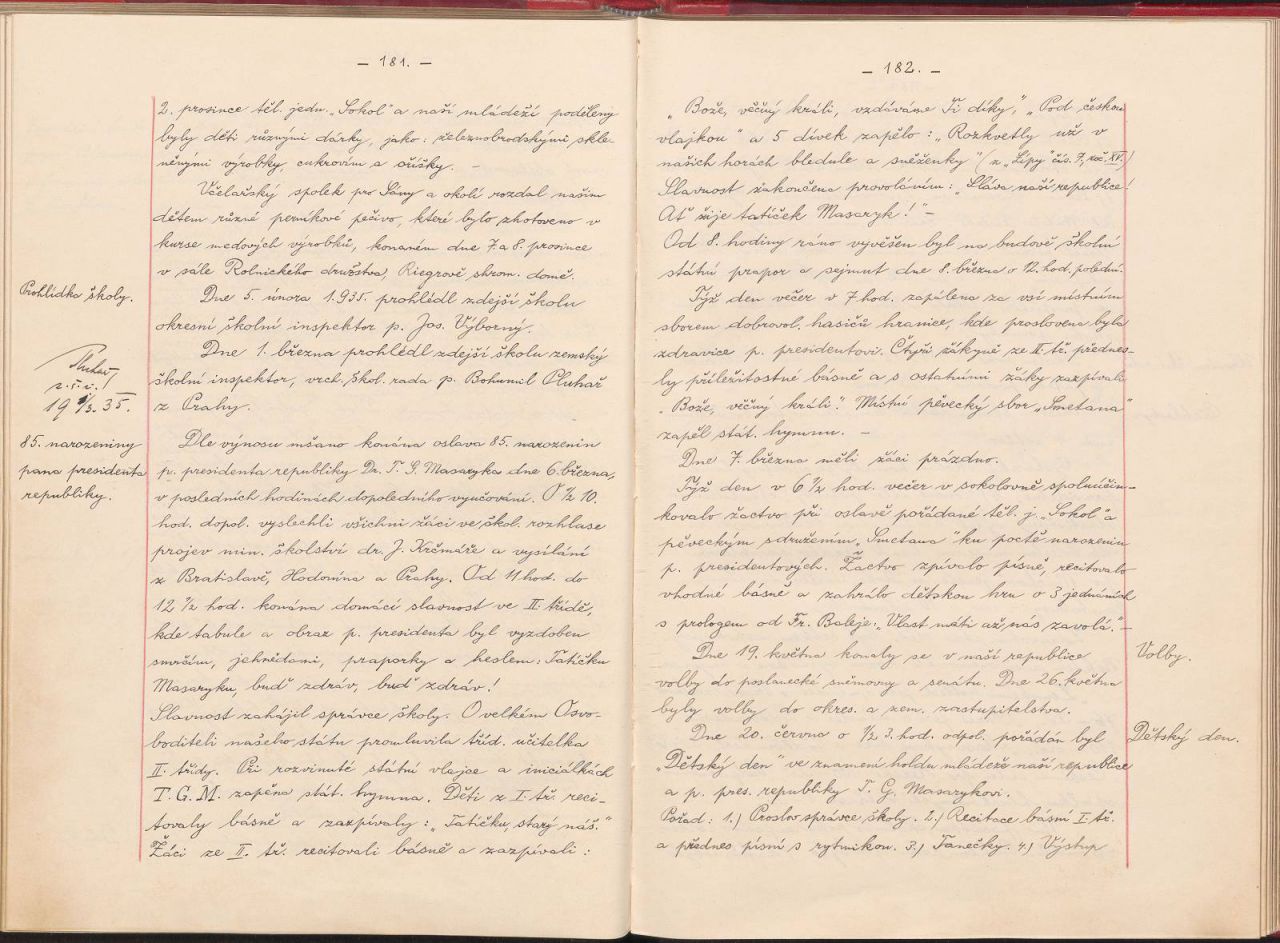 — 181. —
2. prosince těl. jedn. „Sokol" a naší mládeží poděleny
byly děti různými dárky, jako: železnobrodskými skle-
něnými výrobky, cukrovím a oříšky. —
Včelařský spolek pro Sány a okolí rozdal našim
dětem různé perníkové pečivo, které bylo zhotoveno v
kurse medových výrobků, konaném dne 7. a 8. prosince
v sále Rolnického družstva, Riegrově shrom. domě.
Prohlídka školy.
Dne 5. února 1.935. prohlédl zdejší školu
okresní školní inspektor p. Jos. Výborný.
Dne 1. března prohlédl zdejší školu zemský
školní inspektor, vrch. škol. rada p. Bohumil Pluhař
z Prahy.
z. š. i.
19 1/3. 35.
85. narozeniny
pana presidenta
republiky.
Dle výnosu mšano konána oslava 85. narozenin
p. presidenta republiky Dr. T. G. Masaryka dne 6. března,
v posledních hodinách dopoledního vyučování. O 1/2 10.
hod. dopol. vyslechli všichni žáci ve škol. rozhlase
projev min. školství dr. J. Krčmáře a vysílání
z Bratislavě, Hodonína a Prahy. Od 11 hod. do
12 1/2 hod. konána domácí slavnost ve II. třídě,
kde tabule a obraz p. presidenta byl vyzdoben
smrčím, jehnědami, praporky a heslem: Tatíčku
Masaryku, buď zdráv, buď zdráv!
Slavnost zahájil správce školy. O velkém Osvo-
boditeli našeho státu promluvila tříd. učitelka
II. třídy. Při rozvinuté státní vlajce a iniciálkách
T. G. M. zapěna stát. hymna. Děti z I. tř. reci-
tovaly básně a zazpívaly: „Tatíčku, starý náš."
Žáci ze II. tř. recitovali básně a zazpívali:
— 182. —
„Bože, věčný králi, vzdáváme Ti díky," „Pod českou
vlajkou" a 5 dívek zapělo: „Rozkvetly už v
našich horách bledule a sněženky" (z „Lípy" čís. 7, roč. XV.)
Slavnost zakončena provoláním: „Sláva naší republice!
Ať žije tatíček Masaryk!" —
Od 8. hodiny ráno vyvěšen byl na budově školní
státní prapor a sejmut dne 8. března o 12. hod. polední.
Týž den večer v 7 hod. zapálena za vsí místním
sborem dobrovol. hasičů hranice, kde proslovena byla
zdravice p. presidentovi. Čtyři žákyně ze II. tř. přednes-
ly příležitostné básně a s ostatními žáky zazpívali
„Bože, věčný králi". Místní pěvecký sbor „Smetana"
zapěl stát. hymnu. —
Dne 7. března měli žáci prázdno.
Týž den v 6 1/2 hod. večer v sokolovně spoluúčin-
kovalo žactvo při oslavě pořádané těl. j. „Sokol" a
pěveckým sdružením „Smetana" ku poctě narozenin
p. presidentových. Žactvo zpívalo písně, recitovalo
vhodné básně a zahrálo dětskou hru o 3 jednáních
s prologem od Fr. Baleje: „Vlast máti až nás zavolá." —
Volby.
Dne 19. května konaly se v naší republice
volby do poslanecké sněmovny a senátu. Dne 26. května
byly volby do okres. a zem. zastupitelstva.
Dětský den.
Dne 20. června o 1/2 3. hod. odpol. pořádán byl
„Dětský den" ve znamení holdu mládeže naší republice
a p. pres. republiky T. G. Masarykovi.
Pořad: 1.) Proslov správce školy. 2.) Recitace básní I. tř.
a přednes písní s rytmikou. 3.) Tanečky. 4.) Výstup